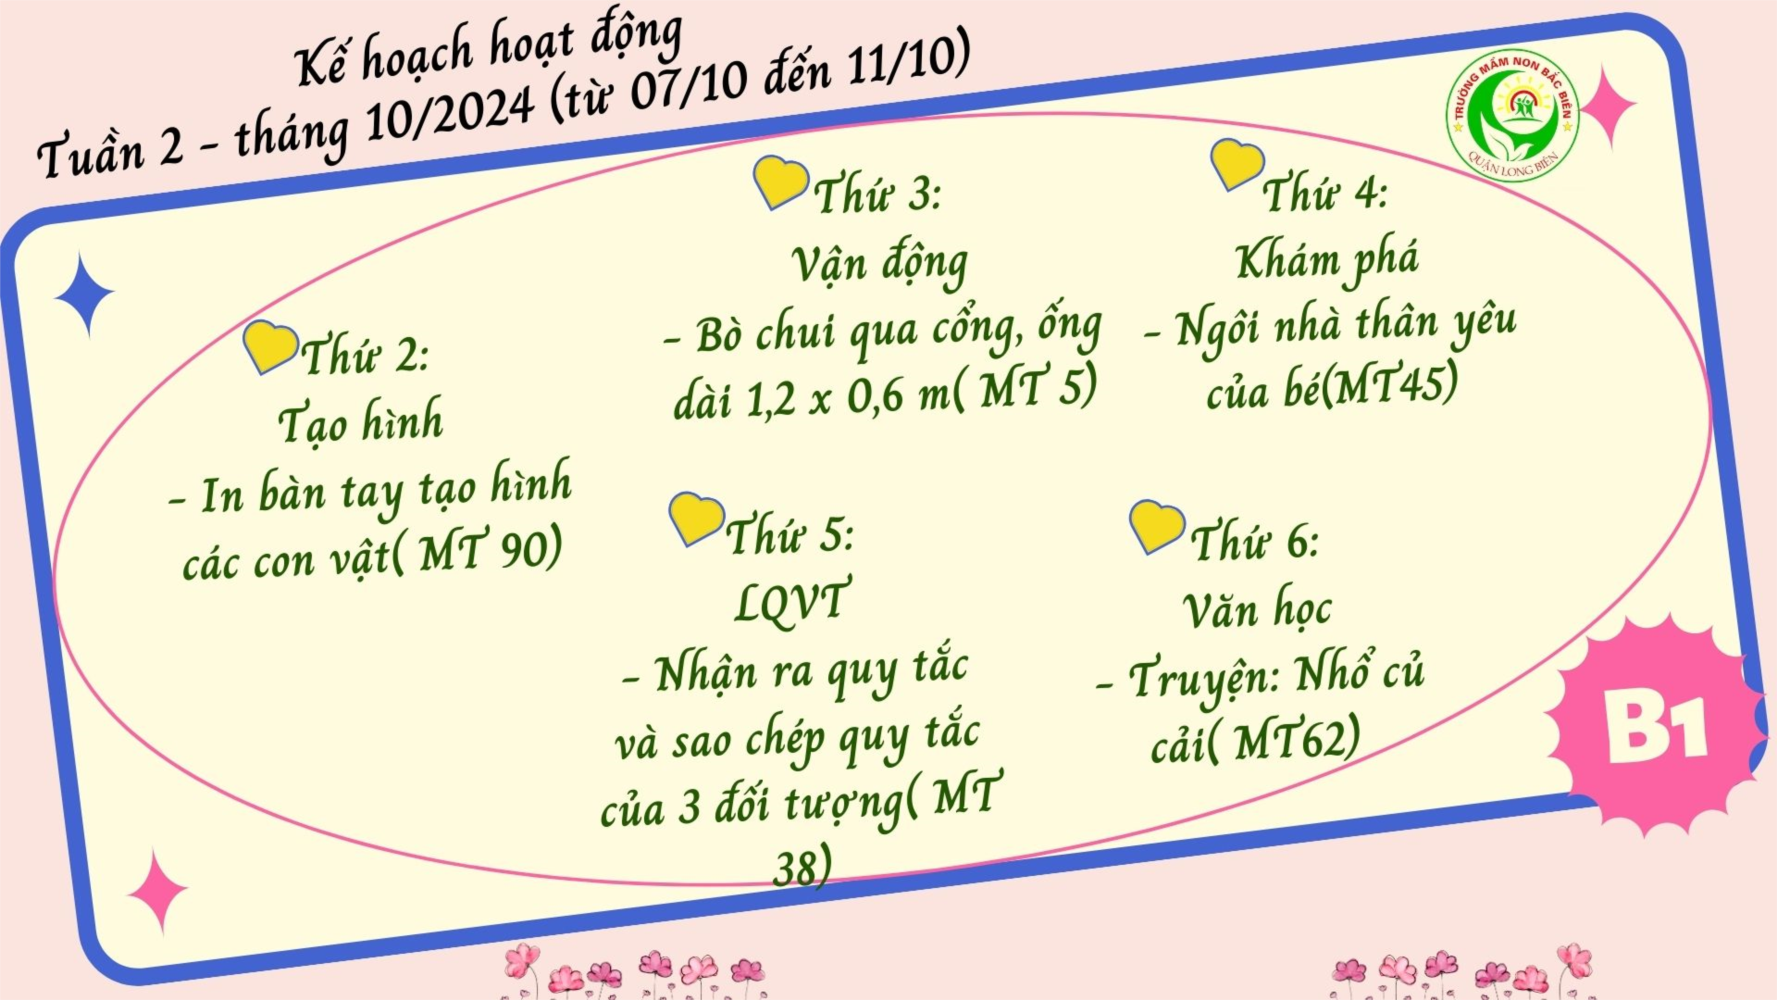 Kế hoạch hoạt động
Tuần 2 - tháng 10/2024 (từ 07/10 đến 11/10)
TRƯỜNG MẦM NON BẮC BIÊN
QUẬN LONG BIÊN
Thứ 2:
Tạo hình
- In bàn tay tạo hình
các con vật( MT 90)
Thứ 3:
Vận động
- Bò chui qua cổng, ống
dài 1,2 x 0,6 m( MT 5)
Thứ 4:
Khám phá
- Ngôi nhà thân yêu
của bé(MT45)
Thứ 5:
LQVT
- Nhận ra quy tắc
và sao chép quy tắc
của 3 đối tượng( MT
38)
Thứ 6:
Văn học
- Truyện: Nhổ củ
cải( MT62)
B1